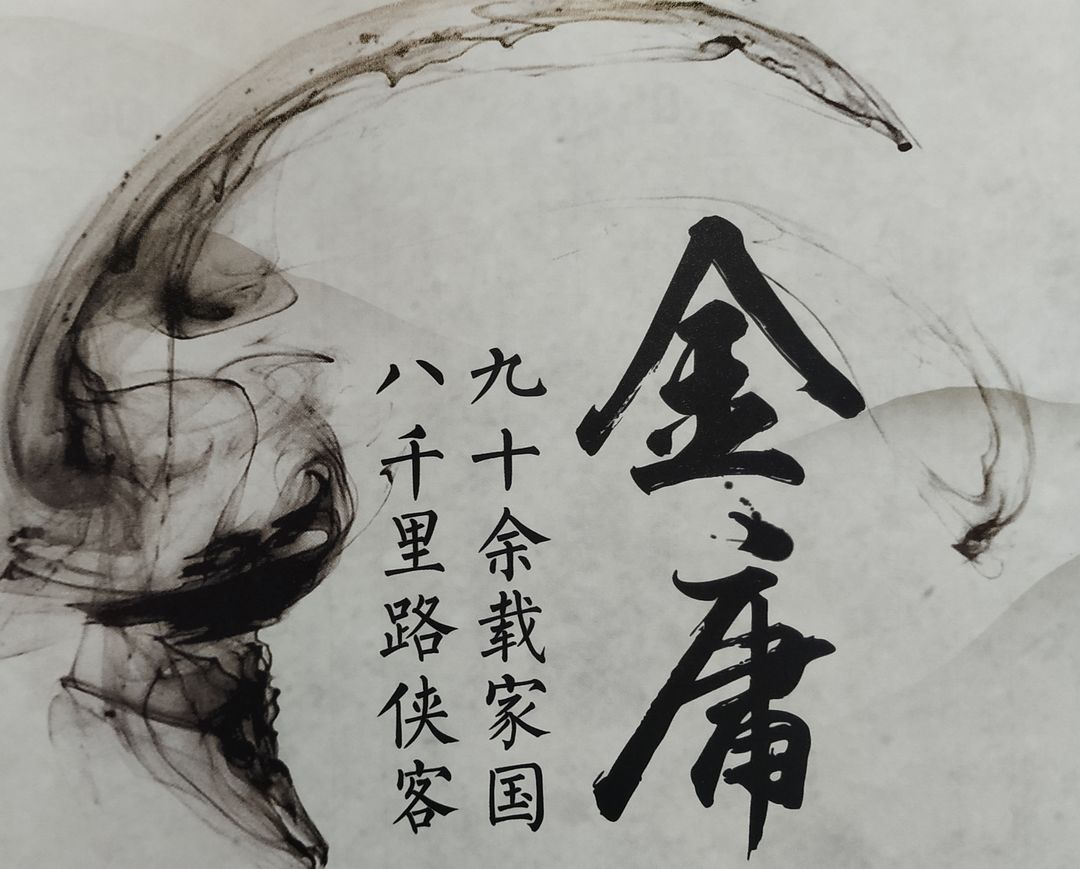 金庸
九十余载家国
八千里路侠客